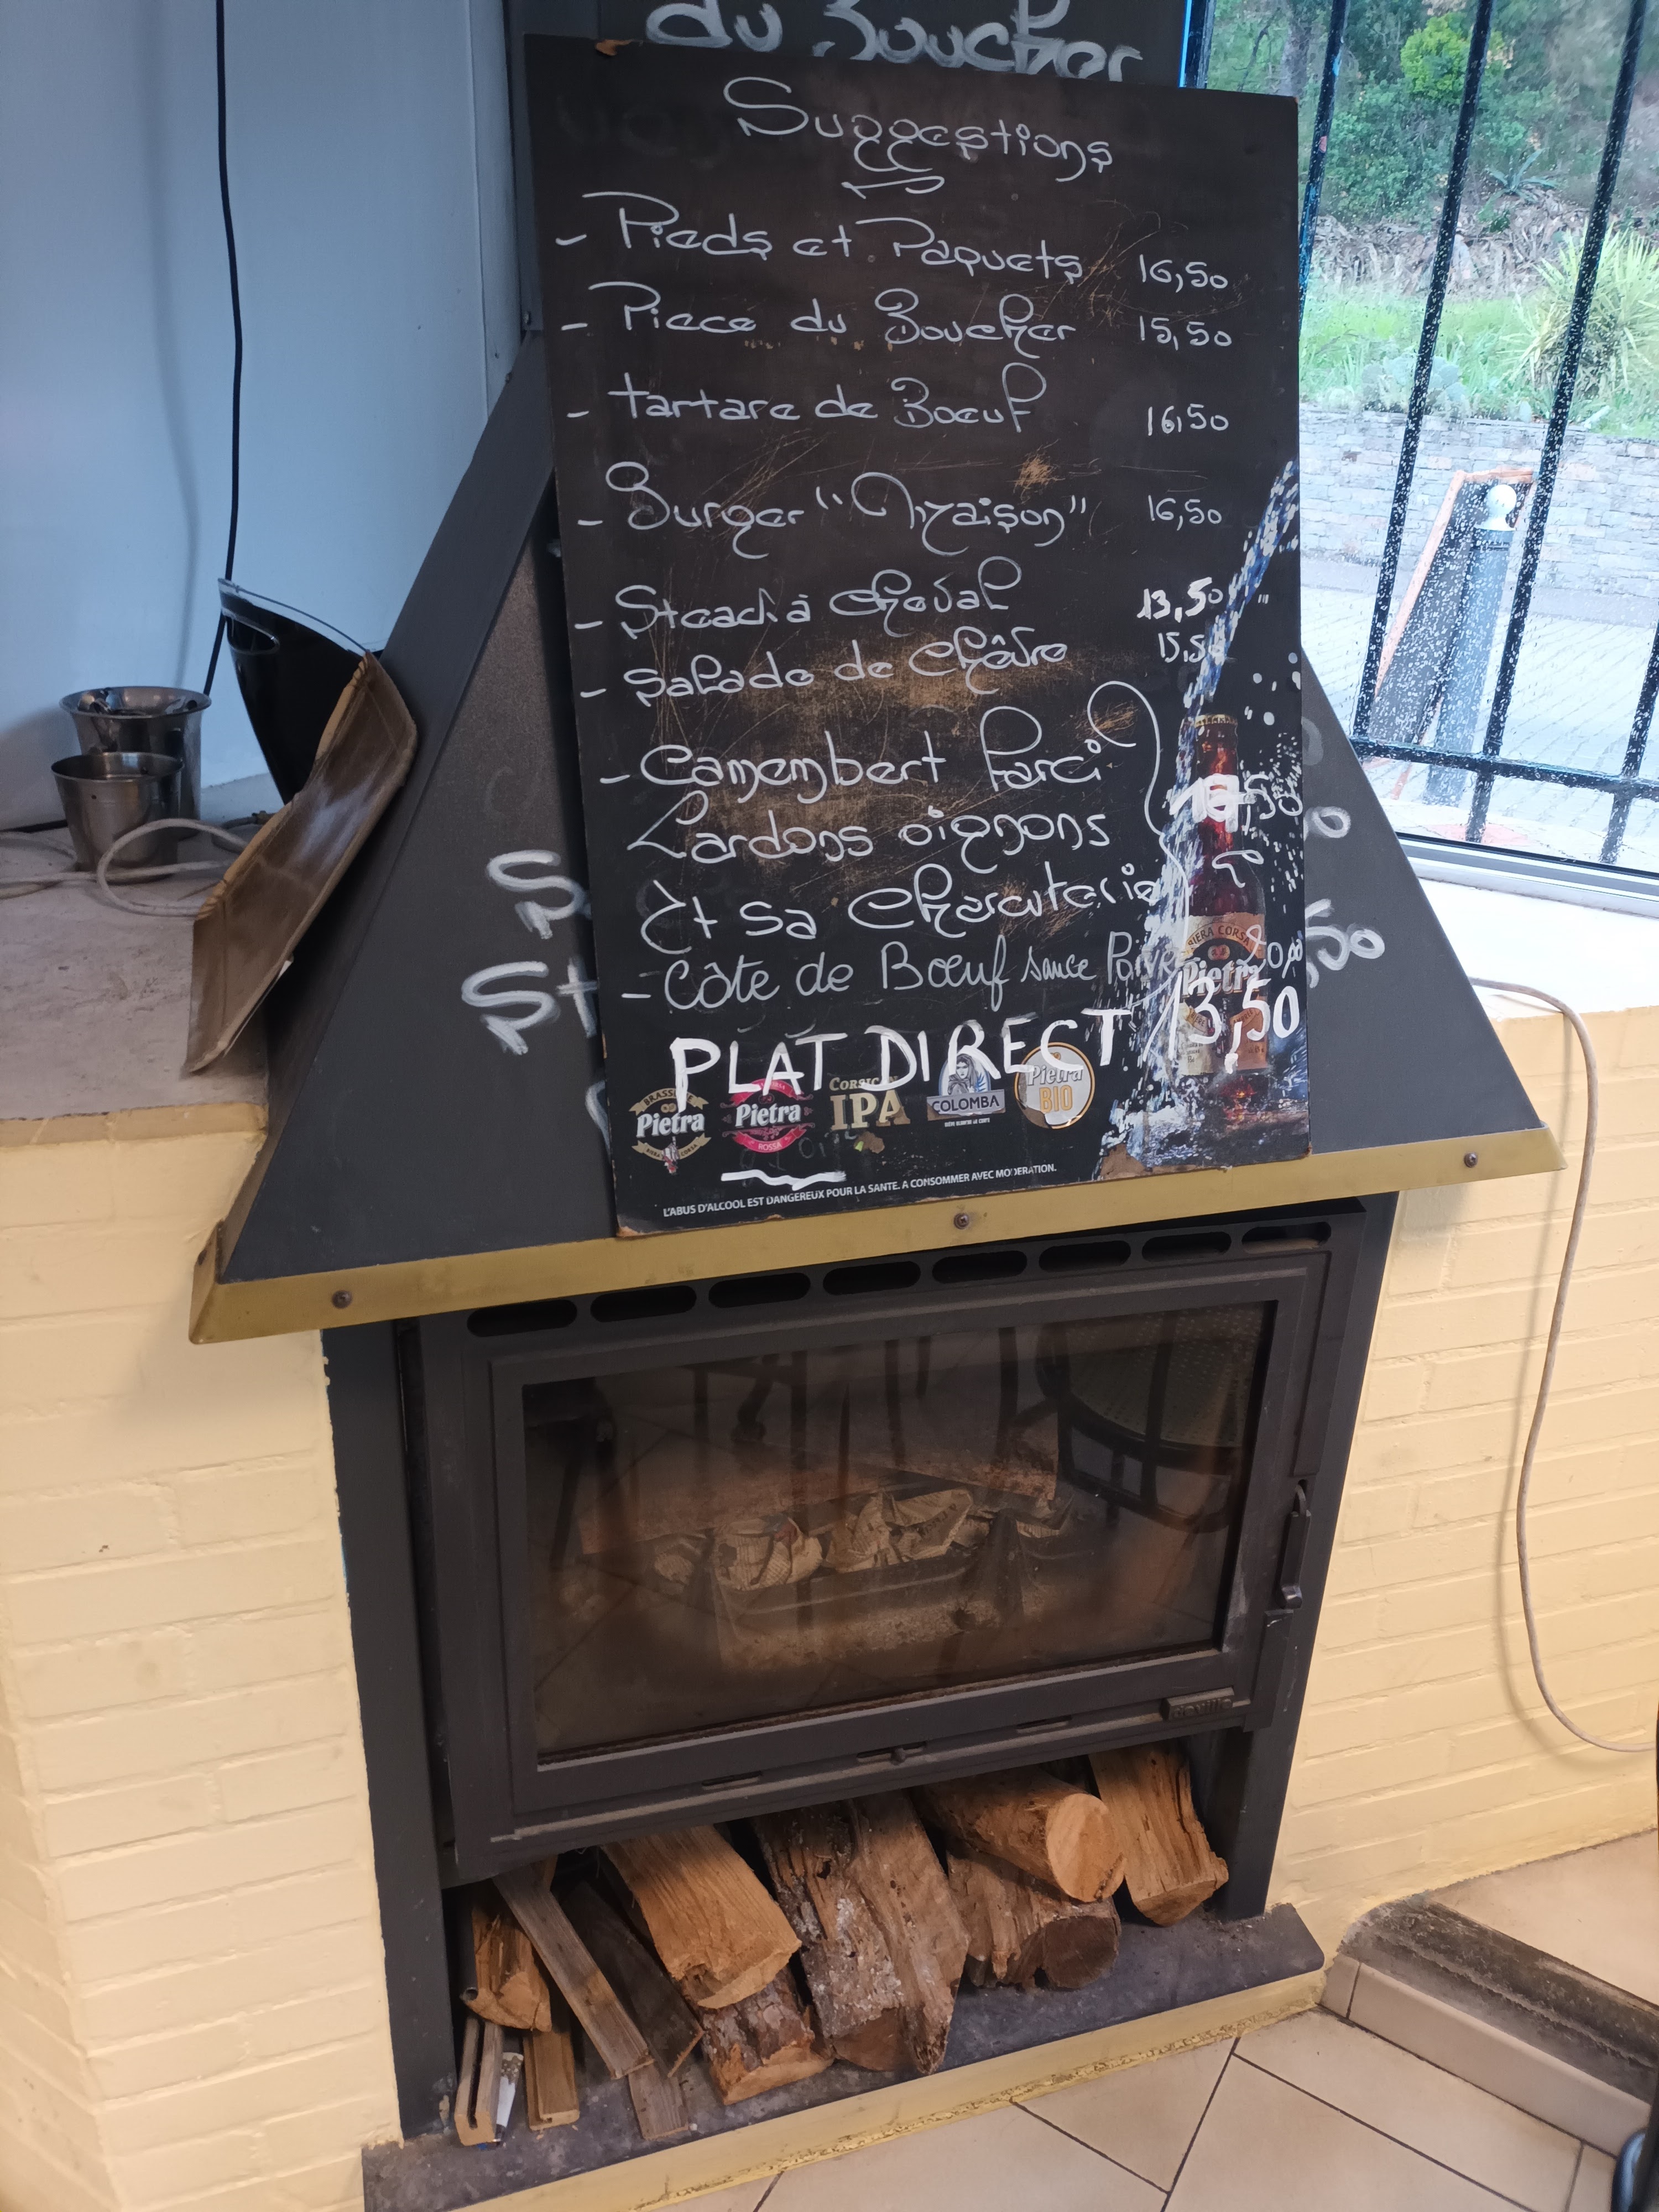 du Boucher
Suggestions
- Pieds et Paquets 16,50
- Piece du Boucher 15,50
- tartare de Boeuf 16,50
- Burger "Maison" 16,50
- Steack à cheval 13,50
- Salade de chêvre 15,50
- Camembert Farci
Lardons oignons
Et sa charcuterie
- Côte de Bœuf sauce Poivre
PLAT DIRECT 13,50
BIERA CORSA
Pietra
BRASSERIE
Pietra
Pietra
ROSSA
CORSICA
IPA
COLOMBA
Pietra
BIO
L'ABUS D'ALCOOL EST DANGEREUX POUR LA SANTE. A CONSOMMER AVEC MODERATION.
S
St
50